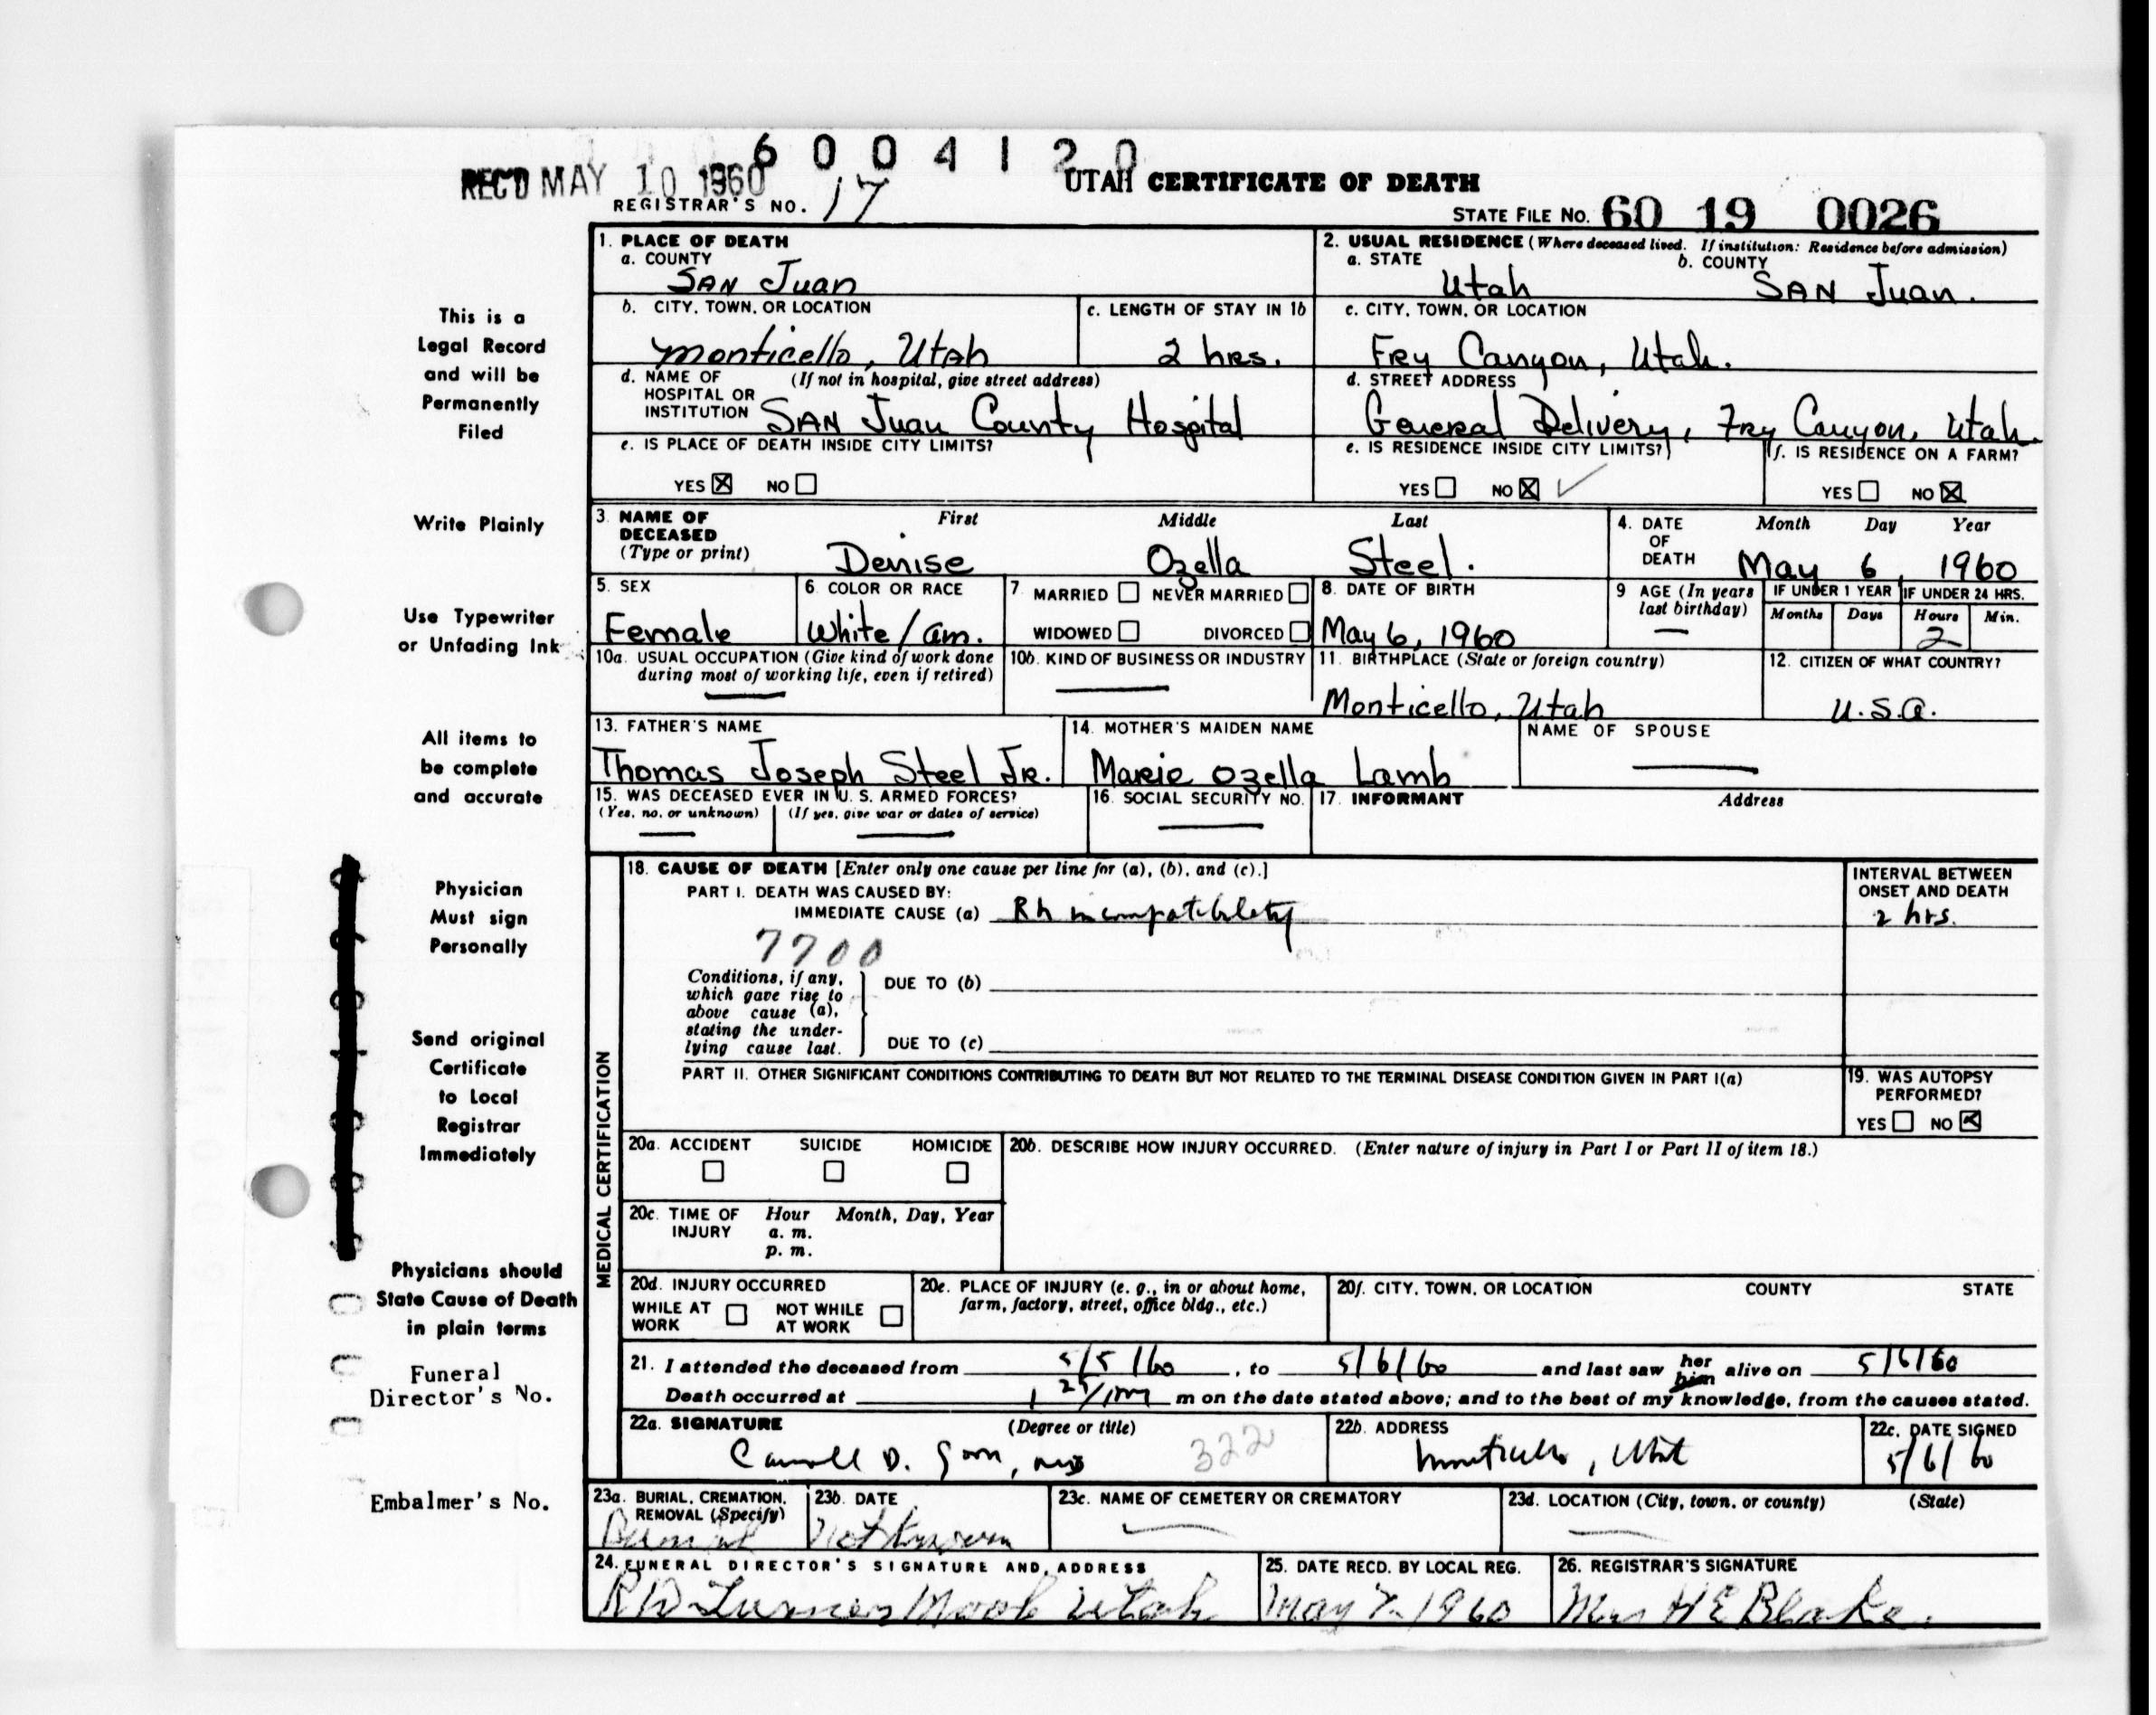 6004120
REC'D MAY 10 1960
UTAH CERTIFICATE OF DEATH
REGISTRAR'S NO. 17
STATE FILE NO. 60 19 0026
This is a
Legal Record
and will be
Permanently
Filed
Write Plainly
Use Typewriter
or Unfading Ink
All items to
be complete
and accurate
Physician
Must sign
Personally
Send original
Certificate
to Local
Registrar
Immediately
Physicians should
State Cause of Death
in plain terms
Funeral
Director's No.
Embalmer's No.
1. PLACE OF DEATH
a. COUNTY
SAN Juan
2. USUAL RESIDENCE (Where deceased lived. If institution: Residence before admission)
a. STATE b. COUNTY
Utah SAN Juan.
b. CITY, TOWN, OR LOCATION
Monticello, Utah
c. LENGTH OF STAY IN 1b
2 hrs.
c. CITY, TOWN, OR LOCATION
Fry Canyon, Utah.
d. NAME OF (If not in hospital, give street address)
HOSPITAL OR
INSTITUTION SAN Juan County Hospital
d. STREET ADDRESS
General Delivery, Fry Canyon, Utah.
e. IS PLACE OF DEATH INSIDE CITY LIMITS?
YES ☒ NO ☐
e. IS RESIDENCE INSIDE CITY LIMITS?
YES ☐ NO ☒ ✓
f. IS RESIDENCE ON A FARM?
YES ☐ NO ☒
3. NAME OF First Middle Last
DECEASED
(Type or print) Denise Ozella Steel.
4. DATE Month Day Year
OF
DEATH May 6, 1960
5. SEX
Female
6. COLOR OR RACE
White/am.
7. MARRIED ☐ NEVER MARRIED ☐
WIDOWED ☐ DIVORCED ☐
8. DATE OF BIRTH
May 6, 1960
9. AGE (In years
last birthday)
—
IF UNDER 1 YEAR IF UNDER 24 HRS.
Months Days Hours Min.
2
10a. USUAL OCCUPATION (Give kind of work done
during most of working life, even if retired)
—
10b. KIND OF BUSINESS OR INDUSTRY
—
11. BIRTHPLACE (State or foreign country)
Monticello, Utah
12. CITIZEN OF WHAT COUNTRY?
U.S.A.
13. FATHER'S NAME
Thomas Joseph Steel JR.
14. MOTHER'S MAIDEN NAME
Marie Ozella Lamb
NAME OF SPOUSE
—
15. WAS DECEASED EVER IN U. S. ARMED FORCES?
(Yes, no, or unknown) (If yes, give war or dates of service)
— —
16. SOCIAL SECURITY NO.
—
17. INFORMANT Address
MEDICAL CERTIFICATION
18. CAUSE OF DEATH [Enter only one cause per line for (a), (b), and (c).]
PART I. DEATH WAS CAUSED BY:
IMMEDIATE CAUSE (a) Rh incompatibility
INTERVAL BETWEEN
ONSET AND DEATH
2 hrs.
7700
Conditions, if any,
which gave rise to
above cause (a),
stating the under-
lying cause last.
DUE TO (b)
DUE TO (c)
PART II. OTHER SIGNIFICANT CONDITIONS CONTRIBUTING TO DEATH BUT NOT RELATED TO THE TERMINAL DISEASE CONDITION GIVEN IN PART I(a)
19. WAS AUTOPSY
PERFORMED?
YES ☐ NO ☒
20a. ACCIDENT SUICIDE HOMICIDE
☐ ☐ ☐
20b. DESCRIBE HOW INJURY OCCURRED. (Enter nature of injury in Part I or Part II of item 18.)
20c. TIME OF Hour Month, Day, Year
INJURY a. m.
p. m.
20d. INJURY OCCURRED
WHILE AT ☐ NOT WHILE ☐
WORK AT WORK
20e. PLACE OF INJURY (e. g., in or about home,
farm, factory, street, office bldg., etc.)
20f. CITY, TOWN, OR LOCATION COUNTY STATE
21. I attended the deceased from 5/5/60, to 5/6/60 and last saw her him alive on 5/6/60
Death occurred at m on the date stated above; and to the best of my knowledge, from the causes stated.
22a. SIGNATURE (Degree or title)
D. MD 322
22b. ADDRESS
Monticello, Utah
22c. DATE SIGNED
5/6/60
23a. BURIAL, CREMATION,
REMOVAL (Specify)
Burial
23b. DATE
Not Known
23c. NAME OF CEMETERY OR CREMATORY
—
23d. LOCATION (City, town, or county) (State)
—
24. FUNERAL DIRECTOR'S SIGNATURE AND ADDRESS
R W Turner Moab Utah
25. DATE RECD. BY LOCAL REG.
May 7-1960
26. REGISTRAR'S SIGNATURE
Mrs H E Blake.